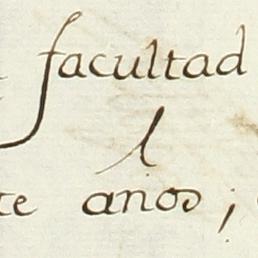 facultad
l
te años;